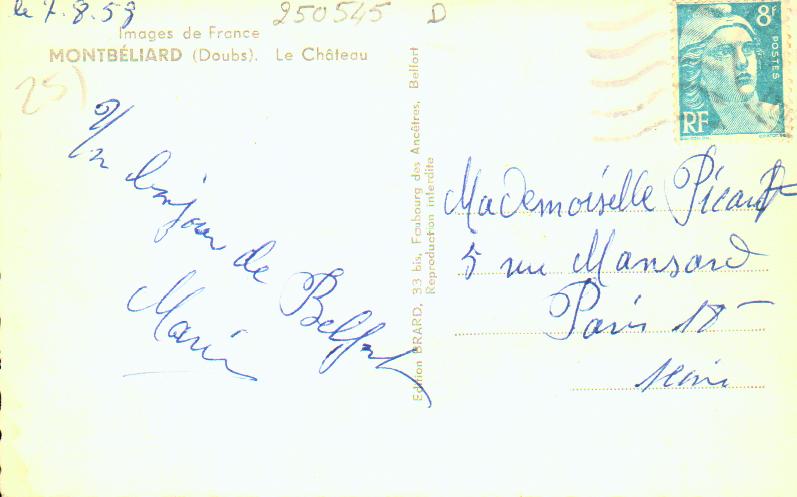 le 7.8.53
250545 D
Images de France
MONTBÉLIARD (Doubs). Le Château
25)
Un bonjour de Belfort
Marie
Edition BRARD, 33 bis, Faubourg des Ancêtres, Belfort
Reproduction interdite
8F
POSTES
RF
Mademoiselle Picard
5 rue Mansard
Paris
Seine